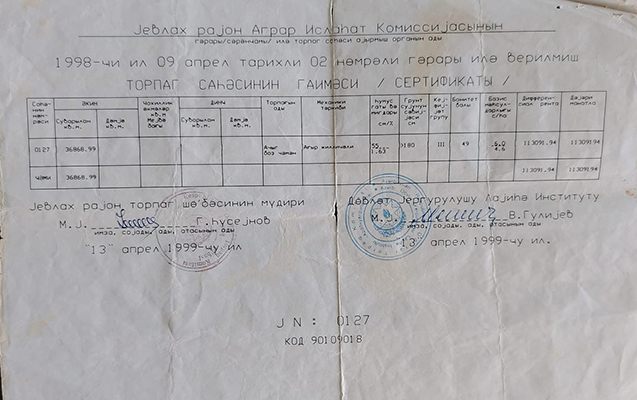 Јевлах рајон Аграр Ислаһат Комиссијасынын
гәрары/сәрәнҹамы/ илә торпаг саһәси ајырмыш органын ады
1998-чи ил 09 апрел тарихли 02 нөмрәли гәрары илә верилмиш
ТОРПАГ САҺӘСИНИН ГАИМӘСИ / СЕРТИФИКАТЫ /
Саһәнин нөмрәси Әкин Чохиллик әкмәләр кв.м Динҹ Торпағын ады Механики тәркиби Һумус гаты вә мигдары см/% Грунт сујунун сәвијјәси см Кејфијјәт групу Бонитет балы Базис мәһсулдарлығы с/һа Дифференсиал рента Дәјәри манатла
Суварылан кв.м. Дәмјә кв.м. Мејвә бағы Суварылан кв.м. Дәмјә кв.м.
0127 36868.99 Ачыг боз чәмән Ағыр киллиҹәли 55 1.63 0180 III 49 6.0 4.6 113091.94 113091.94
Ҹәми 36868.99 113091.94 113091.94
Јевлах рајон торпаг шө'бәсинин мүдири
М.Ј. Г.Һүсејнов
имза, сојады, ады, атасынын ады
"13" апрел 1999-чу ил.
Дөвләт Јергурулушу Лајиһә Институту
М.Ј. В.Гулијев
имза, сојады, ады, атасынын ады
"13" апрел 1999-чу ил.
Ј N : 0127
КОД 90109018